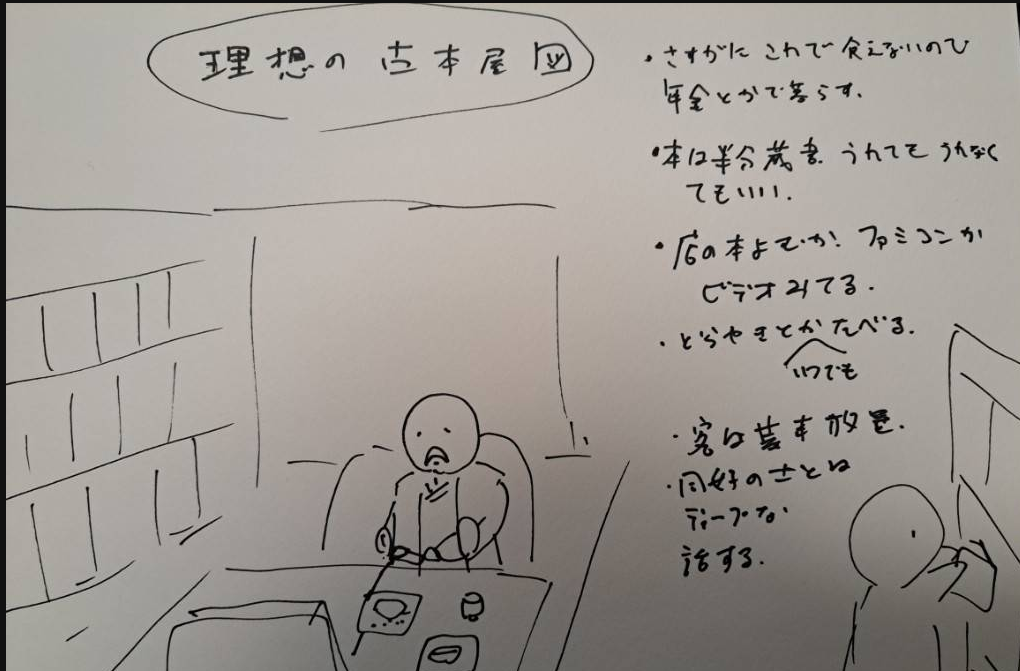 理想の古本屋図
・さすがにこれで食えないので
年金とかで暮らす.
・本は半分蔵書. うれてもうれなく
てもいい.
・店の本よむか. ファミコンか
ビデオみてる.
・どらやきとかたべる.
いつでも
・客は基本放置.
・同好の士とは
ディープな
話する.